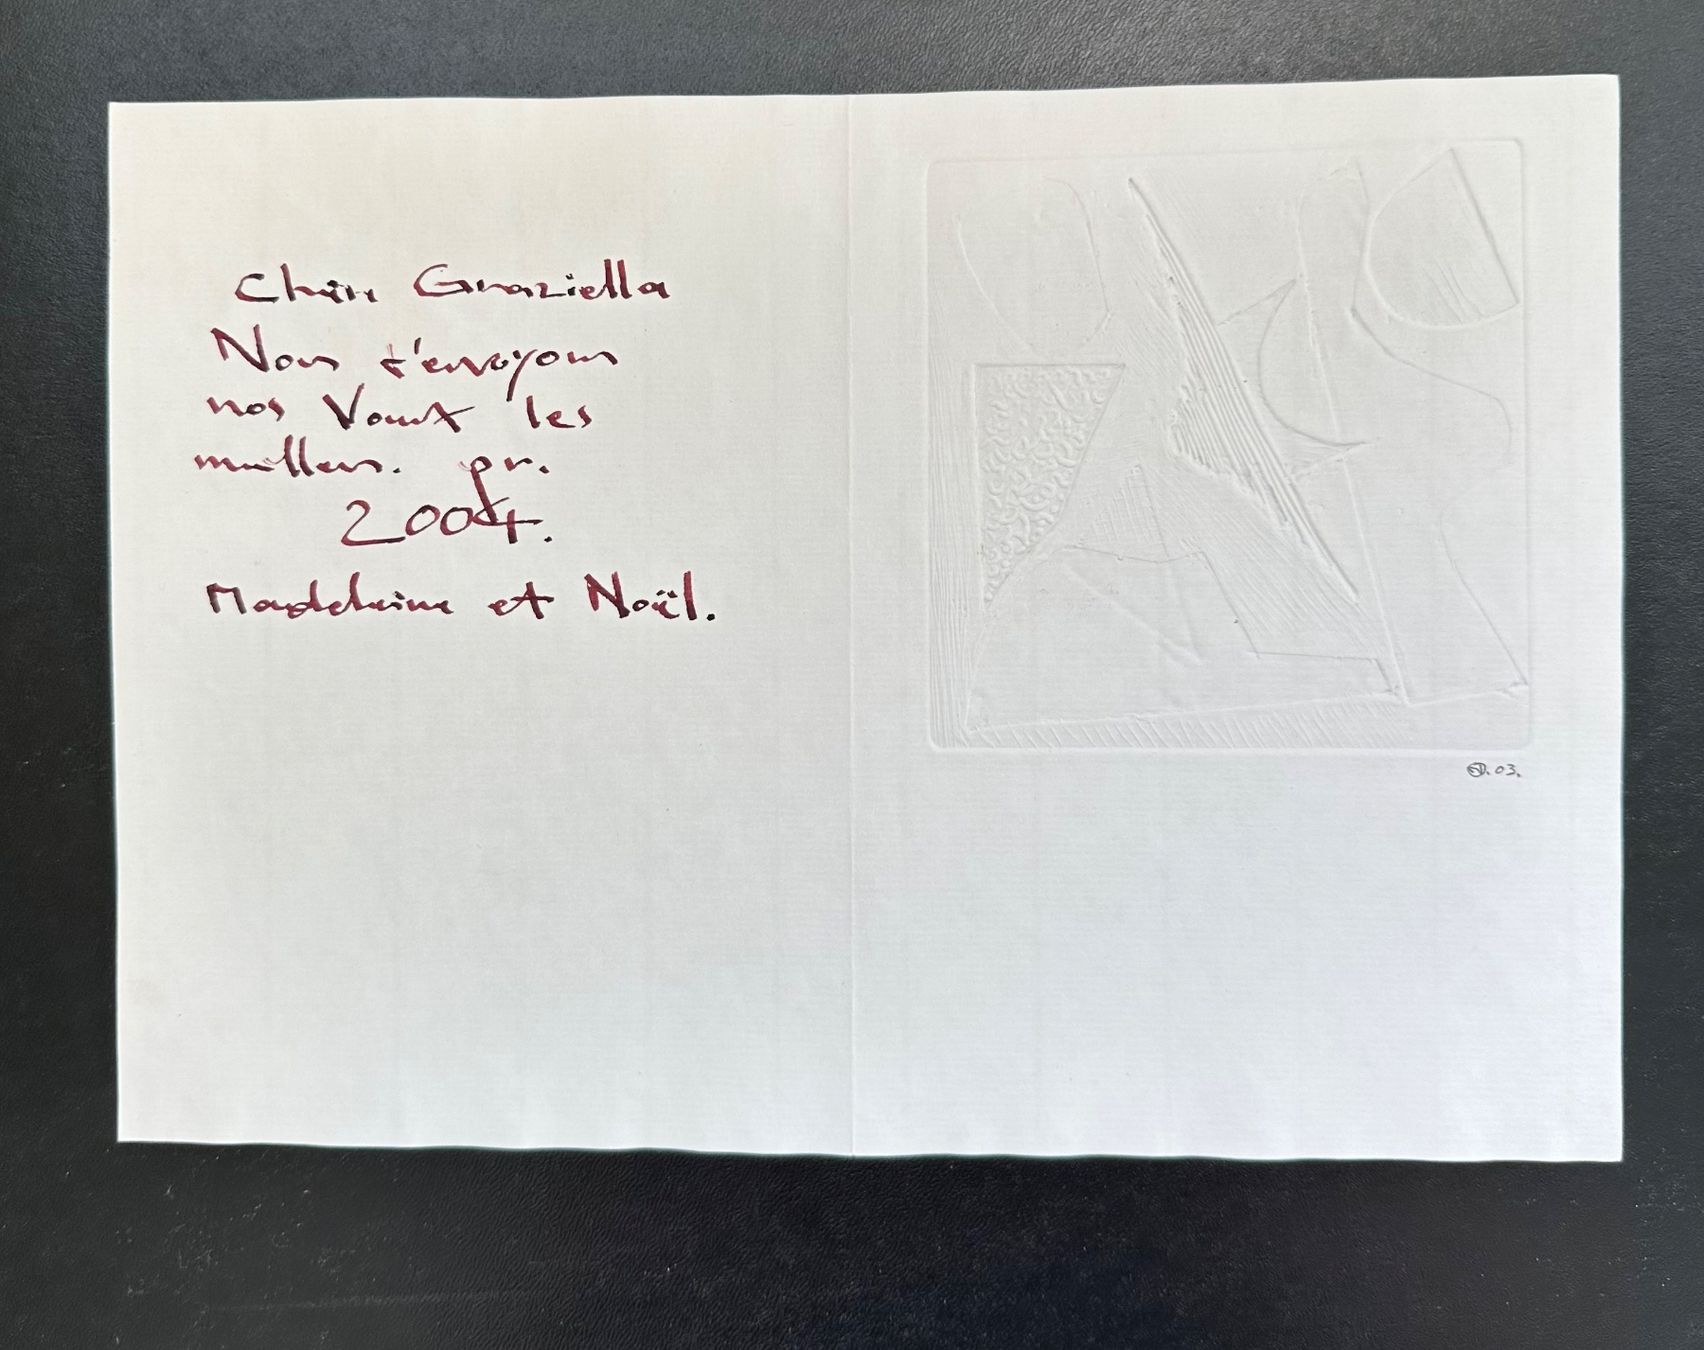 Chère Graziella
Nous t'envoyons
nos Vœux les
meilleurs. pr.
2004.
Madeleine et Noël.
.03.